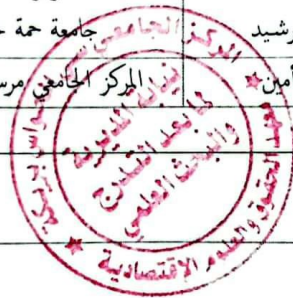 رشيد جامعة حمة
أمين المركز الجامعي مرس
المركز الجامعي
نيابة المديرية
لما بعد التدرج
والبحث العلمي
معهد الحقوق والعلوم الاقتصادية